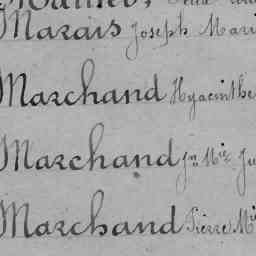 Marais Joseph Mari
Marchand Hyacinthe
Marchand Jn Mie Ju
Marchand Pierre Mie